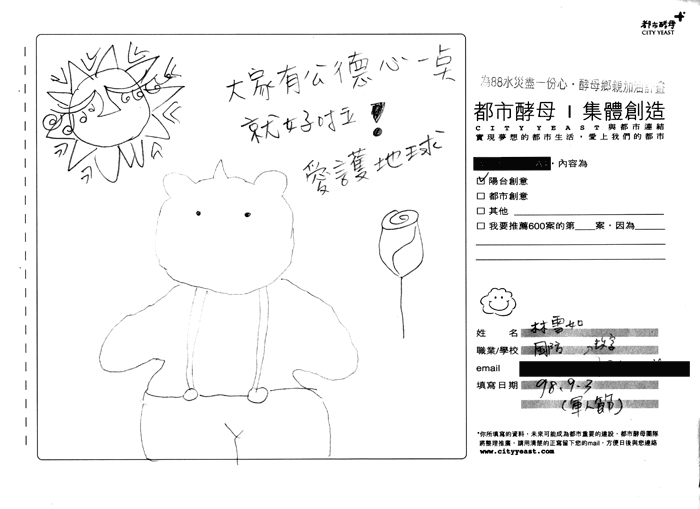 都市酵母
CITY YEAST
大家有公德心一點
就好啦!
愛護地球
為88水災盡一份心・酵母鄉親加油計畫
都市酵母 | 集體創造
CITY YEAST與都市連結
實現夢想的都市生活,愛上我們的都市
,內容為
☑陽台創意
□都市創意
□其他
□我要推薦600案的第____案,因為____
姓 名 林雪如
職業/學校 國防
email
填寫日期 98.9.3
(軍人節)
*你所填寫的資料,未來可能成為都市重要的建設,都市酵母團隊
將整理推薦。請用清楚的正寫留下您的mail,方便日後與您連絡
www.cityyeast.com